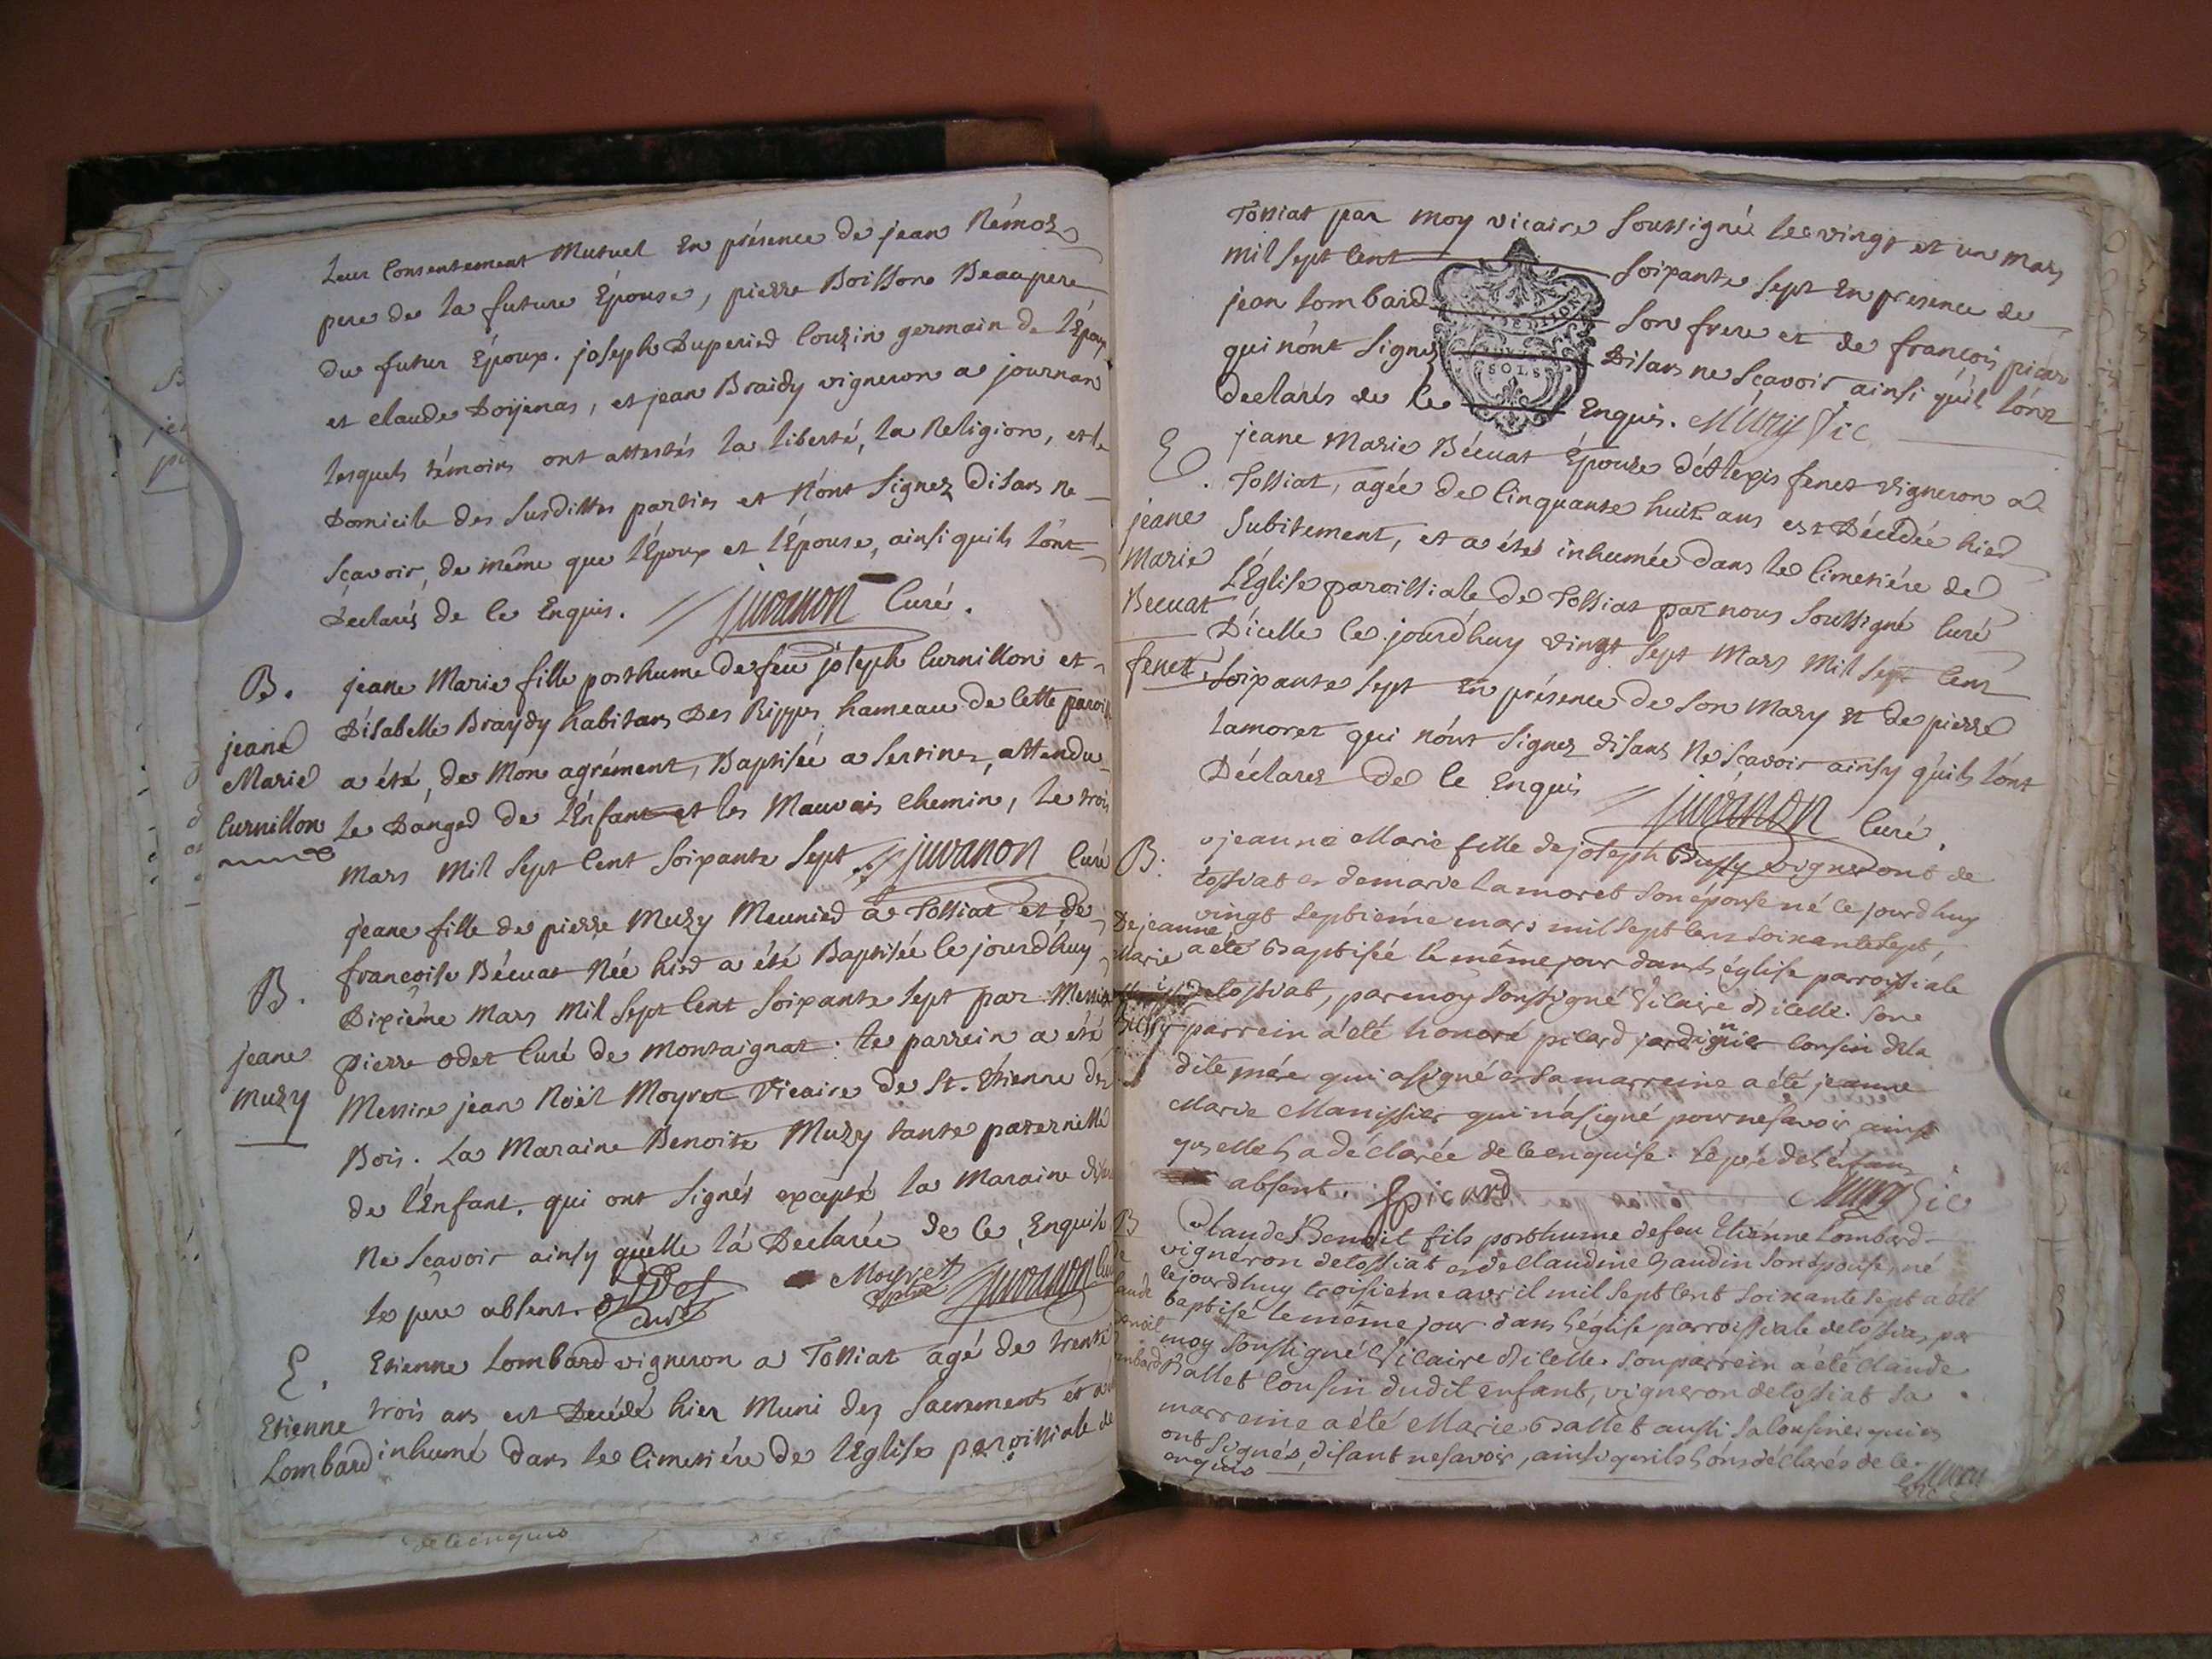 Leur Consentement Mutuel En présence de jean Rémoz
pere de la future Épouse, pierre Boisson Beaupere
du futur Époux. joseph Duperied Couzin germain de L'Époux
et claude Doijenas, et jean Braidy vigneron a journan
lesquels témoins ont attestés la liberté, la Religion, et le
Domicile des susdittes parties et N'ont signez disans ne
sçavoir, de même que l'Époux et l'Épouse, ainsi quils l'ont
Déclarés de ce Enquis. juvanon Curé.
B. jeane Marie fille posthume de feu joseph Curnillon et
D'isabelle Braydy habitans Des Rippes hameau de Cette paroisse
jeane
Marie
Curnillon
a été, de Mon agrément, Baptisée a Sertines, attendu
le Danged de l'Enfant et les Mauvais Chemin, le trois
Mars Mil Sept Cent Soixante Sept juvanon Curé
jeane fille de pierre Muzy Meunied a Tossiat et de
francoise Bécuat Née hied a été Baptisée le jourd'huy
B.
Dixiéme Mars Mil Sept Cent Soixante Sept par Messire
jeane
Muzy
pierre odet Curé de Montaignat. le parrein a été
Messire jean Noël Moyret Vicaire de St. Etienne des
Bois. La Maraine Benoite Muzy tante paternelle
de l'Enfant. qui ont Signés excépté la Maraine disant
Ne Scavoir ainsy qu'elle l'a Declarée de Ce Enquise
le pere absent. odet curé Moyret juvanon Curé
E. Etienne Lombard vigneron a Tossiat agé de trente
Etienne
Lombard
trois ans est Decédé hier Muni des Sacrements et a été
inhumé dans le Cimetiére de l'Église paroissiale de
de ce enquis
Tossiat par Moy vicaire Soussigné le vingt et un Mars
Mil Sept Cent Soixante Sept En presence de
jean Lombard Son frere et de françois picar
qui n'ont Signez Disans ne Scavoir ainsi qu'ils l'ont
declarés de Ce Enquis. Muzy Vic
SOLS
E. jeane Marie Bécuat Épouse d'Alexis fenet vigneron a
jeane
Marie
Becuat
fenet
Tossiat, agée de Cinquante huit ans est Décédée hied
Subitement, et a été inhumée dans le Cimetiére de
L'Église paroissiale de Tossiat par nous Soussigné Curé
D'icelle le jourd'huy vingt Sept Mars Mil Sept Cent
Soixante Sept En présence de Son Mary et de pierre
Lamoret qui n'ont Signez disans Ne Sçavoir ainsy qu'ils l'ont
Déclarez de Ce Enquis juvanon Curé.
B. jeanne Marie fille de joseph Bussy vigneront de
tossiat et de marie Lamoret son épouse né ce jourd'huy
De jeanne
Marie
Bussy
vingt septiéme mars mil sept cent soixante sept,
a été baptisée le même jour dans l'église parroissiale
de tossiat, par moy soussigné Vicaire d'icelle. Son
parrein a été honoré picard jardinier cousin de la
dite mére qui a signé et sa marreine a été jeanne
Marie Manissier qui n'a signé pour ne savoir ainsi
qu'elle l'a déclarée de ce enquise. le pére de l'enfant
absent. hpicard Muzy Vic
B
de
Claude
Benoit
Lombard
Claude Benoit fils posthume de feu Etiénne Lombard
vigneron de tossiat et de Claudine Gaudin son épouse, né
le jourd'huy troisiéme avril mil sept cent soixante sept a été
baptisé le même jour dans l'église parroissiale de tossiat, par
moy soussigné Vicaire d'icelle. son parrein a été Claude
Ballet Cousin dudit enfant, vigneron de tossiat sa
marreine a été Marie Ballet aussi sa Cousine, qui n'
ont signés, disant ne savoir, ainsi qu'ils l'ont déclarés de ce
enquis Muzy Vic